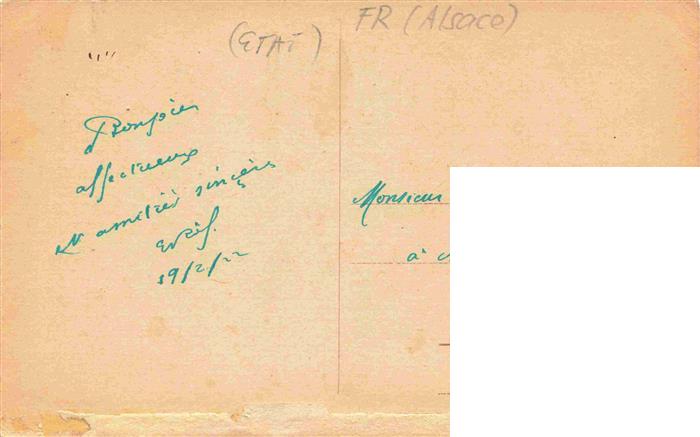 (ETAT)
FR (Alsace)
affectueux
et amitiés sincères
19/2/22
Monsieur
à